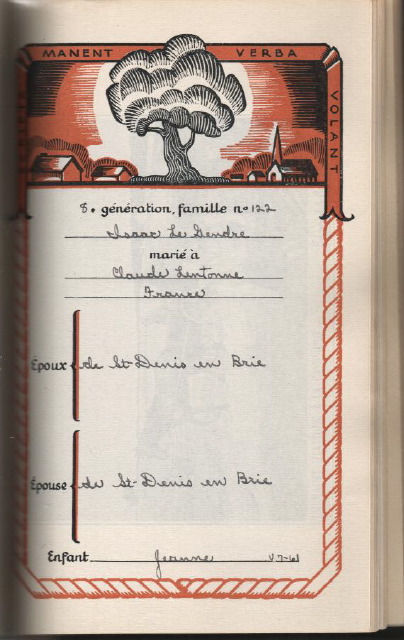 MANENT VERBA
VOLANT
8e génération, famille no 122
Isaac Le Gendre
marié à
Claude Lentonne
France
Époux de St-Denis en Brie
Épouse de St-Denis en Brie
Enfant Jeanne V 7-61